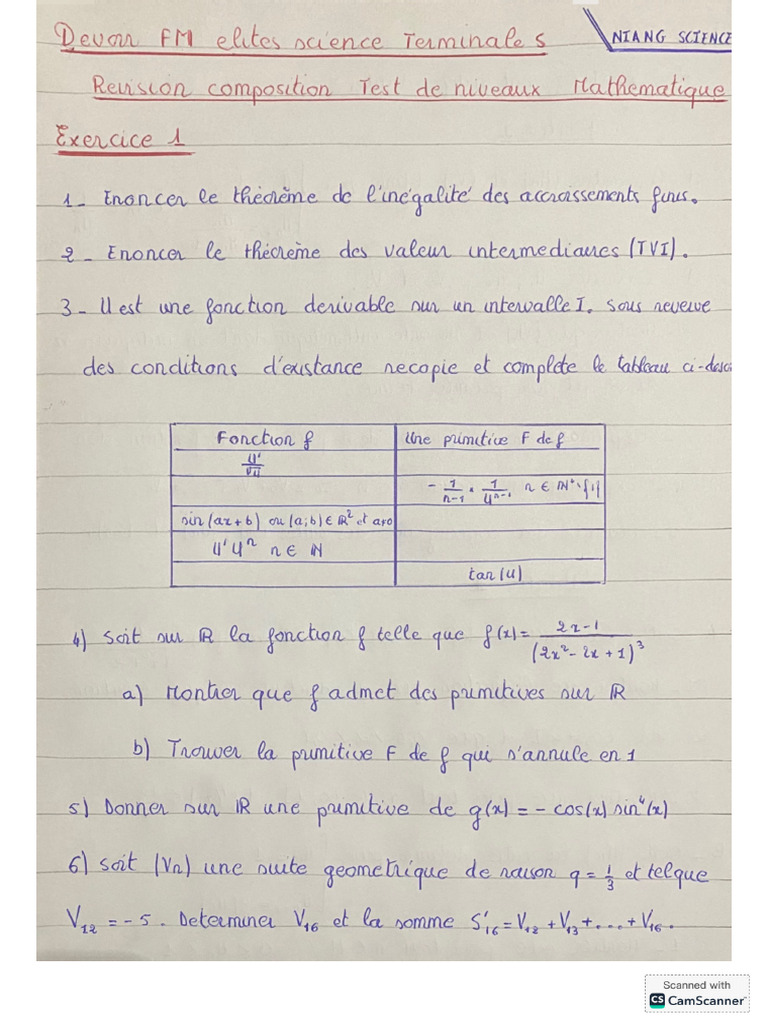 Devoir FM elites science Terminale S
NIANG SCIENCE
Revision composition Test de niveaux Mathematique
Exercice 1
1 - Enoncer le théorème de l'inégalité des accroissements finis.
2 - Enoncer le théorème des valeur intermediaires (TVI).
3 - U est une fonction derivable sur un intervalle I. Sous reverve
des conditions d'existance recopie et complete le tableau ci-dess
Fonction f | Une primitive F de f
U'/√U |
 | - 1/(n-1) × 1/U^(n-1) n ∈ IN*\{1}
sin(ax+b) ou (a;b) ∈ IR² et a≠0 |
U'U^n n ∈ IN |
 | tan(U)
4) Soit sur IR la fonction f telle que f(x) = (2x-1)/(2x²-2x+1)³
a) Montrer que f admet des primitives sur IR
b) Trouver la primitive F de f qui s'annule en 1
5) Donner sur IR une primitive de g(x) = - cos(x) sin⁴(x)
6) Soit (Vn) une suite geometrique de raison q = 1/3 et telque
V₁₂ = -5. Determiner V₁₆ et la somme S'₁₆ = V₁₂ + V₁₃ + .... + V₁₆.
Scanned with
CS CamScanner